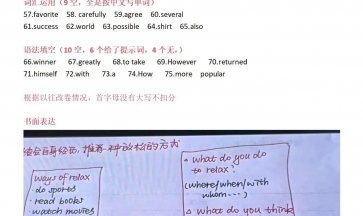 词汇运用（9 空，全是按中文写单词）
57.favorite 58. careful‌ly 59.agree 60.several
61.success 62.world 63.possible 64.shirt 65.also
语法填空（10 空，6 个给了提示词，4 个无，）
66.winner 67.greatly 68.to take 69.However 70.returned
71.himself 72.with 73.a 74.How 75.more popular
根据以往改卷情况，首字母没有大写不扣分
书面表达
结合自身经历，推荐一种放松的方式
ways of relax
· do sports
· read books
watch movies
· what do you do
to relax?
(where/when/with
whom ···)
what do you think